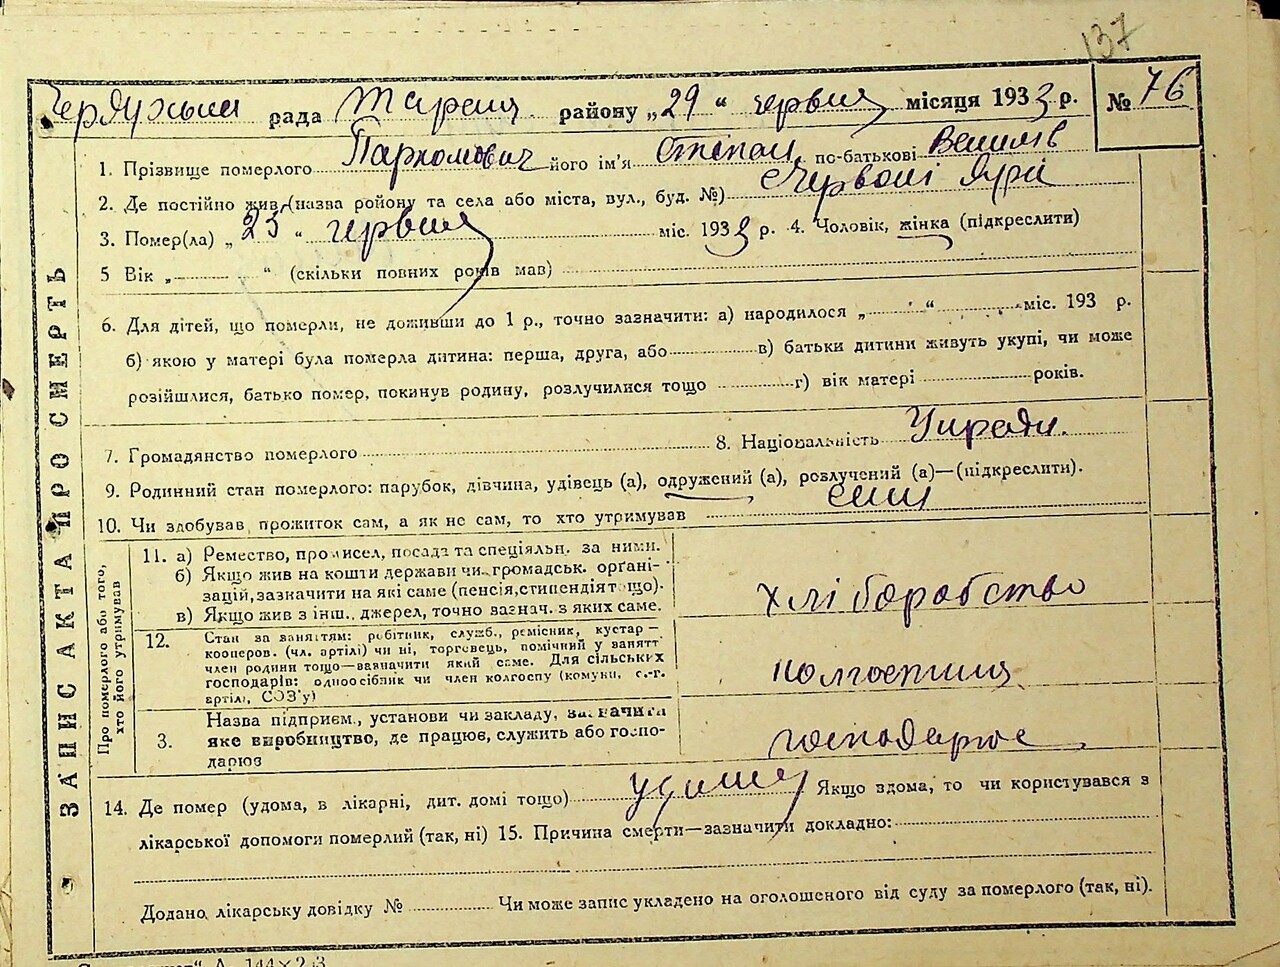 137
рада Тараща району „29“ червня місяця 1933 р. № 76
1. Прізвище померлого Пархомович його ім'я Степан по-батькові
2. Де постійно жив (назва району та села або міста, вул., буд. №) Червоні Яри
3. Помер(ла) „23“ червня міс. 1933 р. 4. Чоловік, жінка (підкреслити)
5 Вік „ “ (скільки повних років мав)
6. Для дітей, що померли, не доживши до 1 р., точно зазначити: а) народилося „ “ міс. 193 р.
б) якою у матері була померла дитина: перша, друга, або в) батьки дитини живуть укупі, чи може
розійшлися, батько помер, покинув родину, розлучилися тощо г) вік матері років.
7. Громадянство померлого 8. Національність
9. Родинний стан померлого: парубок, дівчина, удівець (а), одружений (а), розлучений (а)—(підкреслити).
10. Чи здобував прожиток сам, а як не сам, то хто утримував
ЗАПИС АКТА ПРО СМЕРТЬ
Про померлого або того,
хто його утримував
11. а) Ремество, промисел, посада та спеціяльн. за ними.
б) Якщо жив на кошти держави чи громадськ. орґані-
зацій, зазначити на які саме (пенсія, стипендія тощо).
в) Якщо жив з інш. джерел, точно зазнач. з яких саме.
хліборобство
12. Стан за заняттям: робітник, служб., ремісник, кустар—
кооперов. (чл. артілі) чи ні, торговець, помічний у занятт
член родини тощо—зазначити який саме. Для сільських
господарів: одноосібник чи член колгоспу (комуни, с.-г.
артілі, СОЗ'у)
3. Назва підприєм., установи чи закладу, зазначити
яке виробництво, де працює, служить або госпо-
дарює
господарює
14. Де помер (удома, в лікарні, дит. домі тощо) удома Якщо вдома, то чи користувався з
лікарської допомоги померлий (так, ні) 15. Причина смерти—зазначити докладно:
Додано лікарську довідку № Чи може запис укладено на оголошеного від суду за померлого (так, ні).
144×2